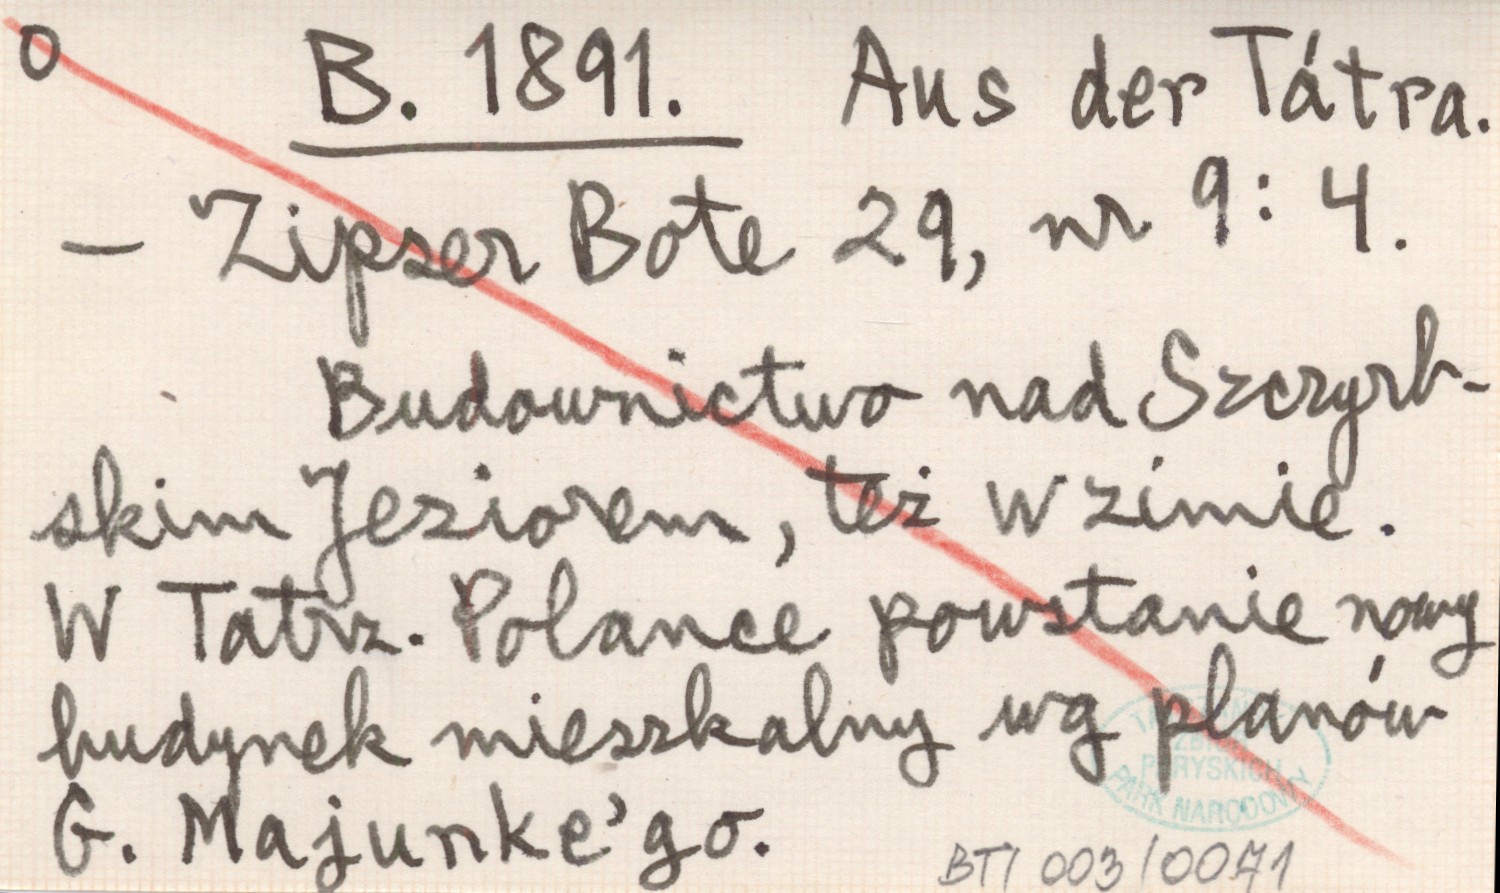 O B. 1891. Aus der Tátra.
— Zipser Bote 29, nr 9: 4.
Budownictwo nad Szczyrb-
skim Jeziorem, też w zimie.
W Tatrz. Polance powstanie nowy
budynek mieszkalny wg planów
G. Majunke'go.
PARK NARODOWY
BT/003/0071